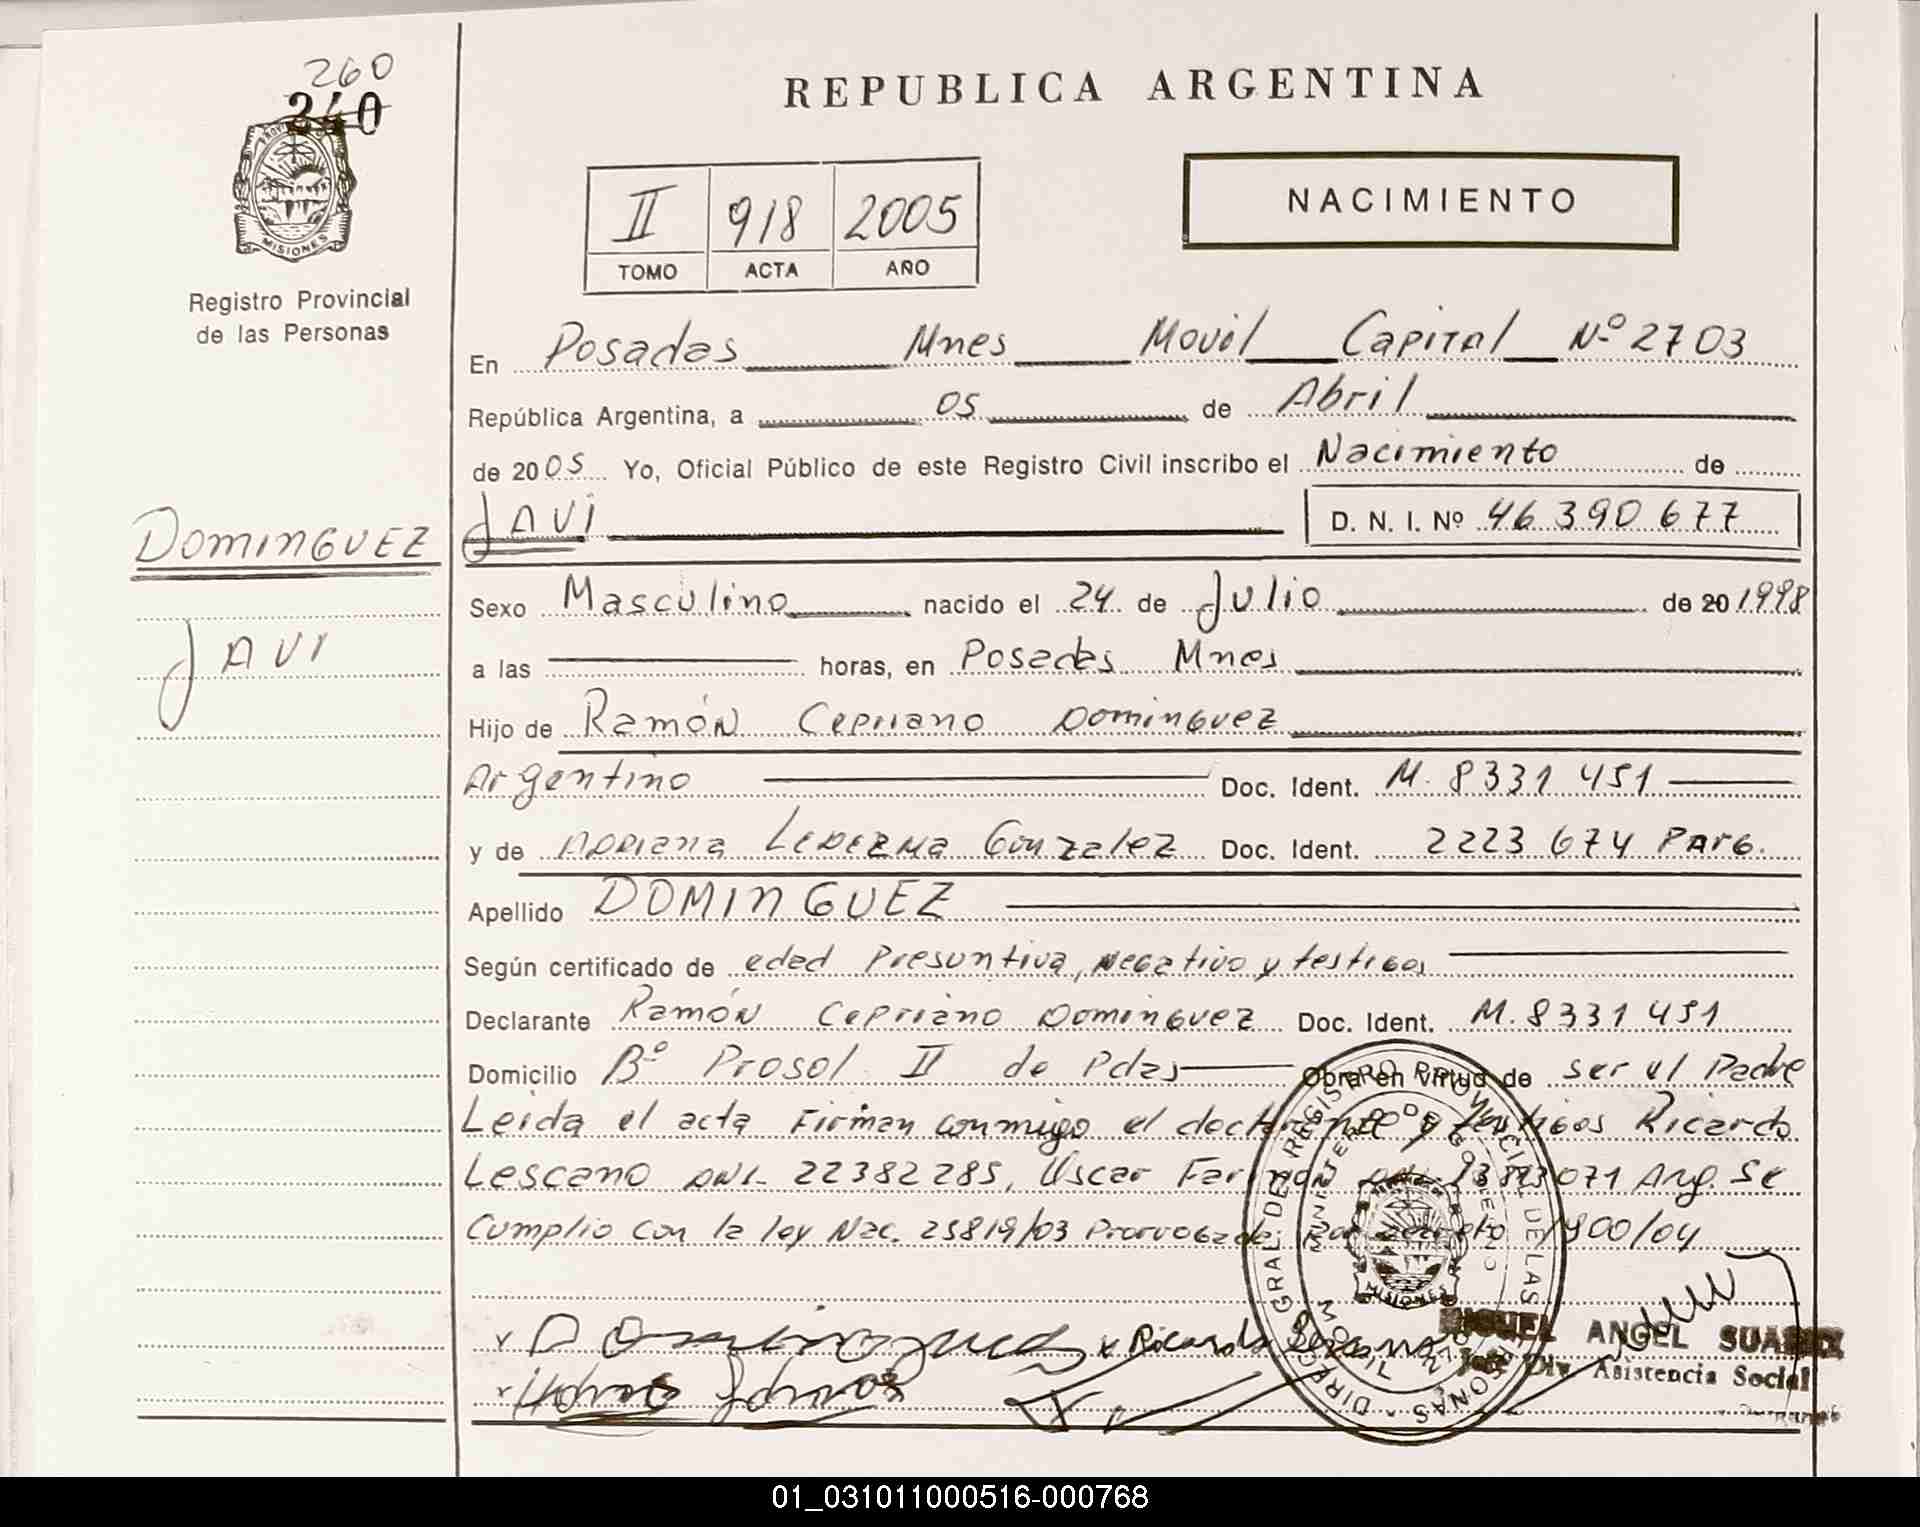 260
240
MISIONES
Registro Provincial
de las Personas
REPUBLICA ARGENTINA
II 918 2005
TOMO ACTA AÑO
NACIMIENTO
En Posadas Mnes Movil Capital Nº 2703
República Argentina, a 05 de Abril
de 2005 Yo, Oficial Público de este Registro Civil inscribo el Nacimiento de
DOMINGUEZ JAVI D. N. I. Nº 46 390 677
Sexo Masculino nacido el 24 de Julio de 20 1998
JAVI
a las horas, en Posadas Mnes
Hijo de Ramón Cepriano Dominguez
Argentino Doc. Ident. M. 8331 451
y de Adriana Ledezma Gonzalez Doc. Ident. 2223 674 Parg.
Apellido DOMINGUEZ
Según certificado de edad Presuntiva, negativo y testigos
Declarante Ramón Cepriano Dominguez Doc. Ident. M. 8331 451
Domicilio Bº Prosol II de Pdas Obra en virtud de ser el Padre
Leida el acta Firman conmigo el y testigos Ricardo
Lescano DNI 22382285, Oscar 071 Arg. Se
Cumplio con la ley Nac. 25819/03 Prorrogada por decreto 1900/04
DIRECCION GRAL. DEL REGISTRO PROVINCIAL DE LAS PERSONAS
MINISTERIO DE GOBIERNO
MISIONES
Dominguez Ricardo Lescano
MIGUEL ANGEL SUAREZ
Jefe Div Asistencia Social
01_031011000516-000768